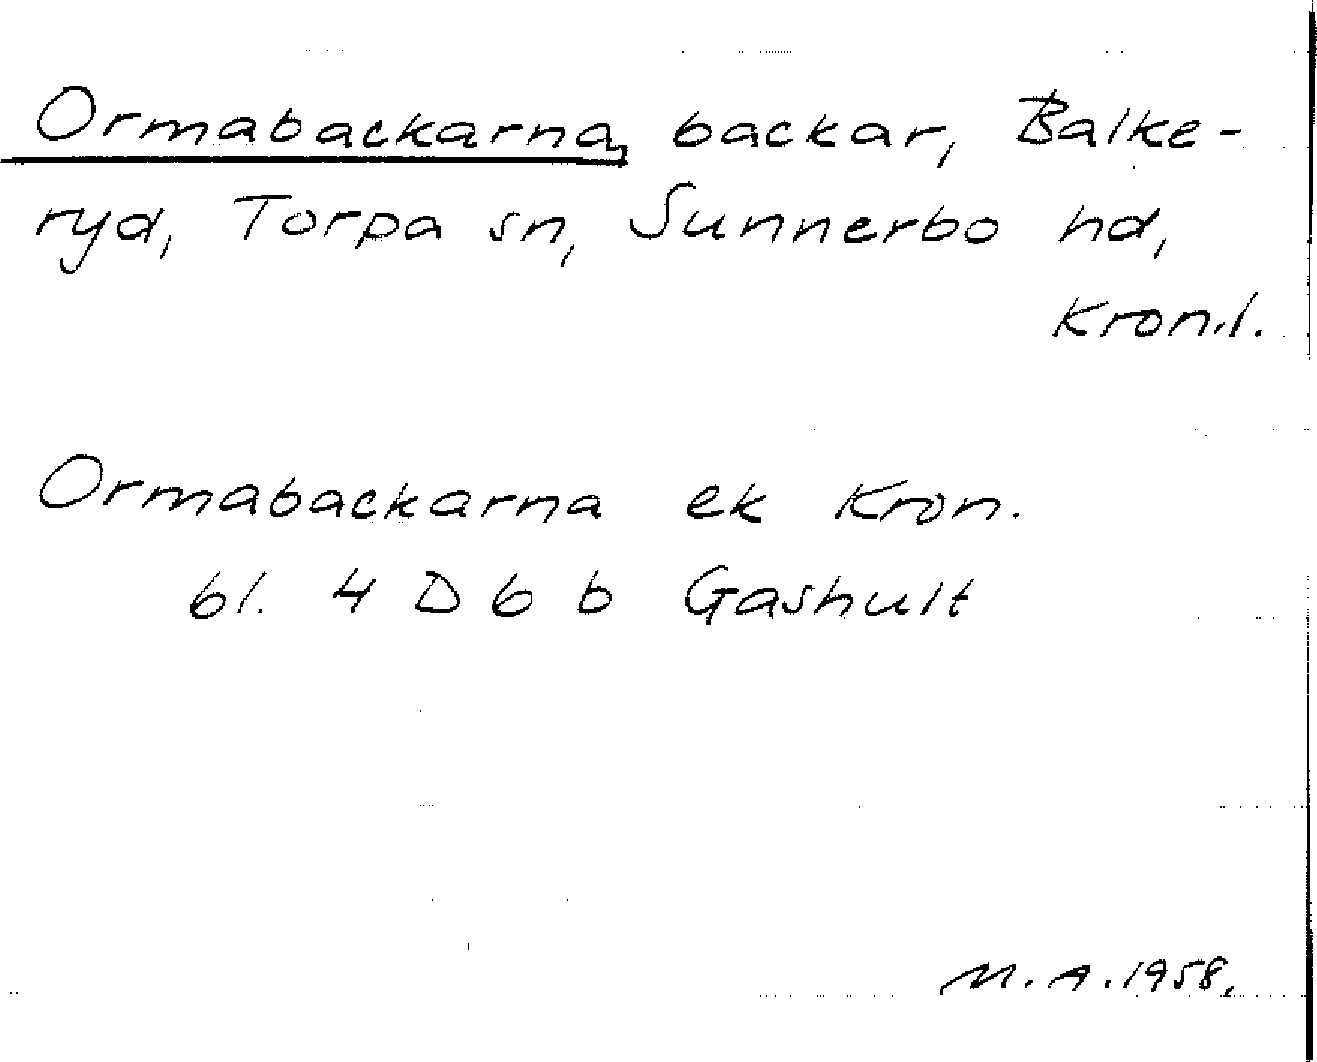 Ormabackarna, backar, Balke-
ryd, Torpa sn, Sunnerbo hd,
Kron.l.
Ormabackarna ek Kron.
bl. 4 D 6 b Gashult
M.A. 1958.